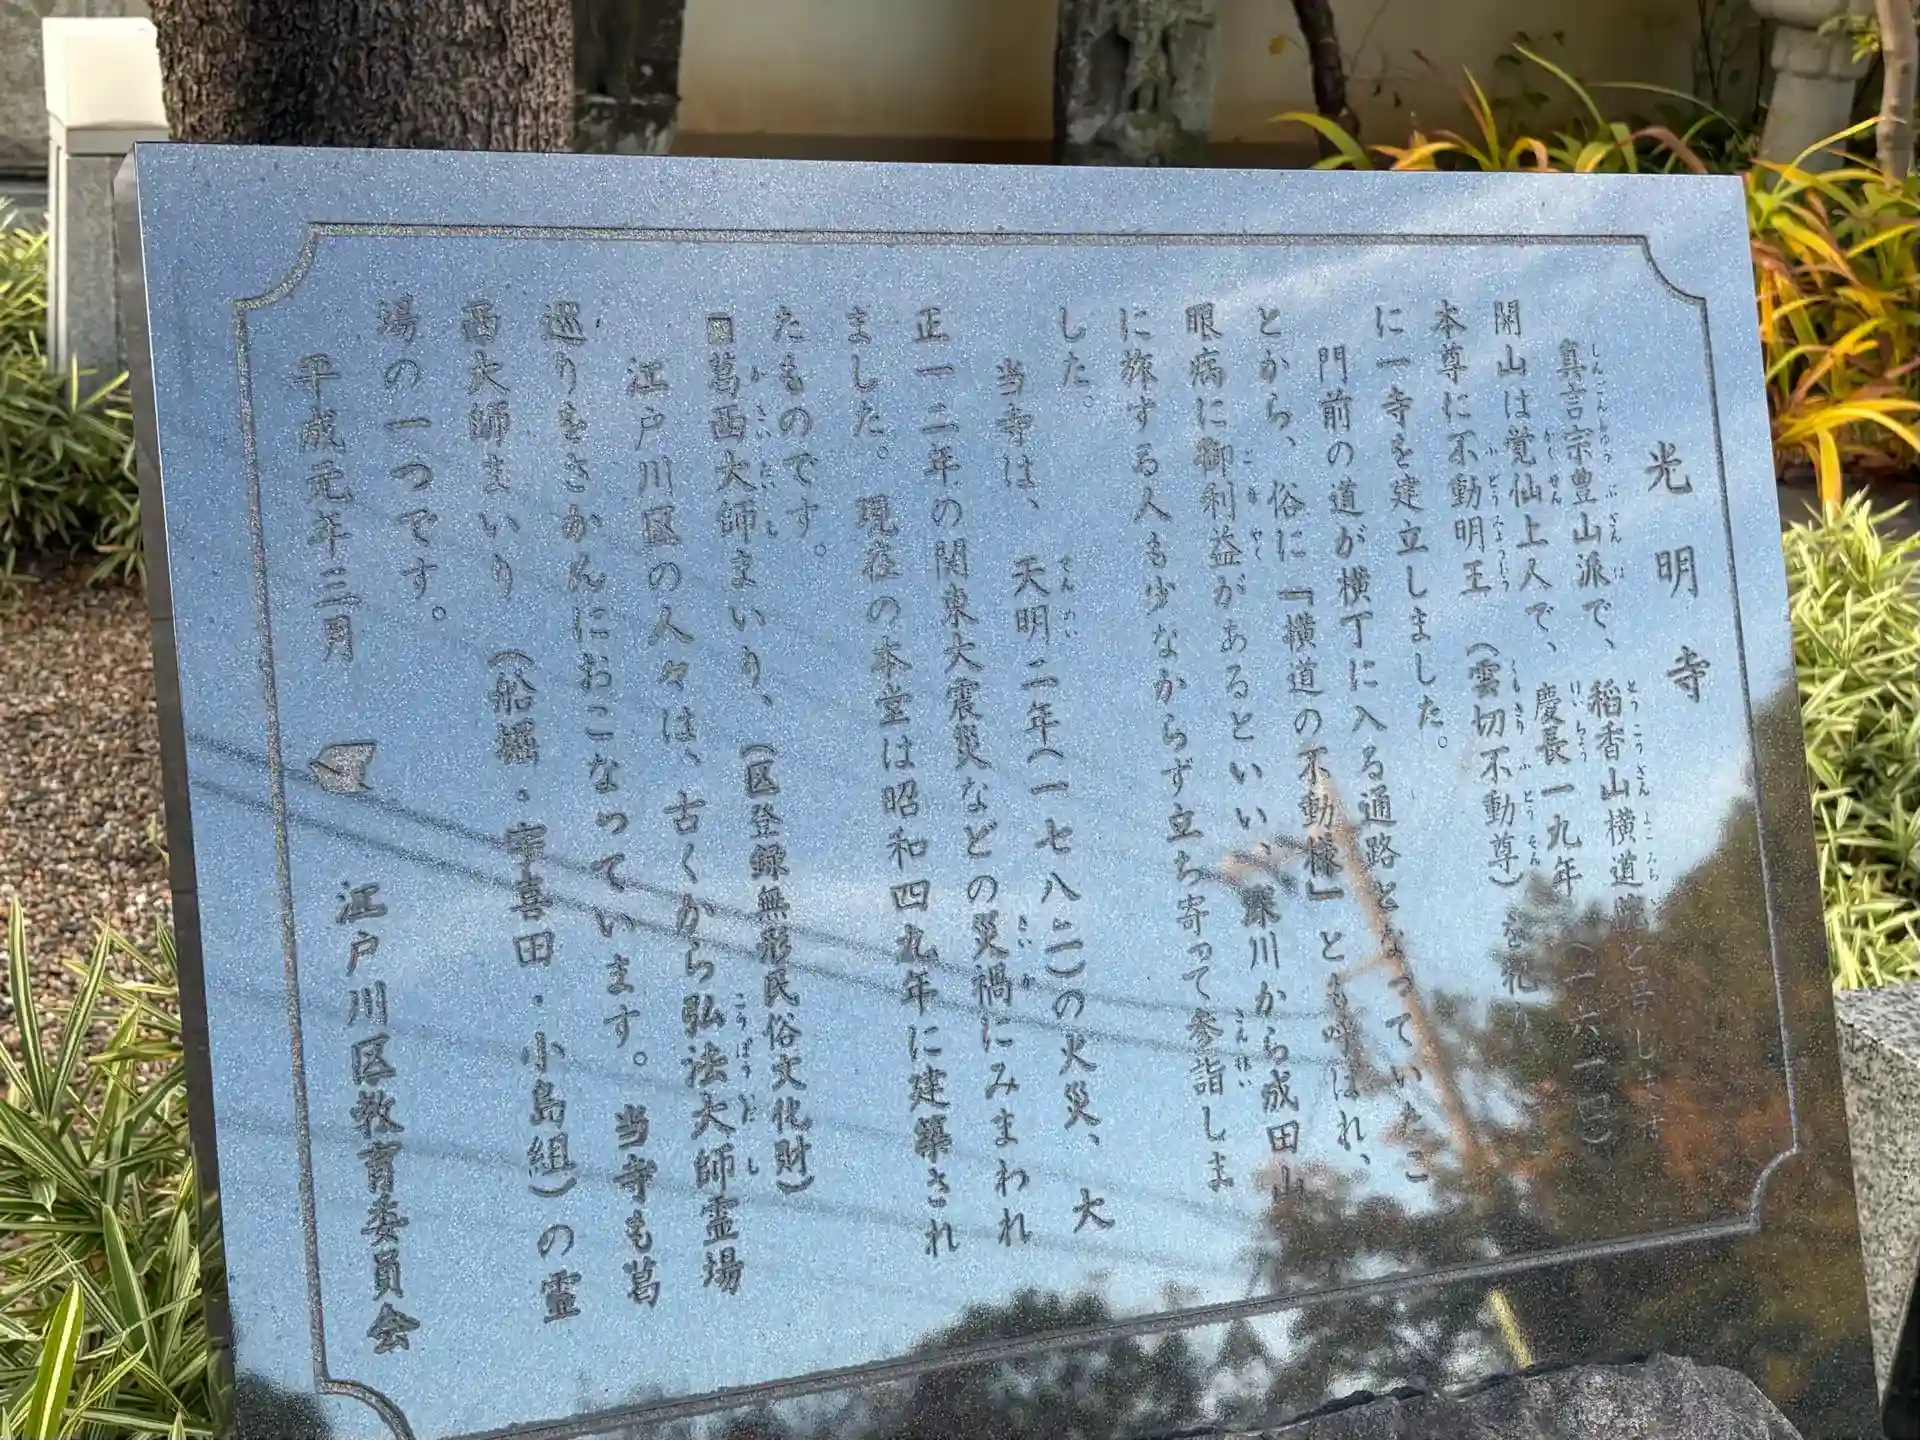 光明寺
真言宗豊山派で、稲香山横道院と号します
開山は覚仙上人で、慶長一九年(一六一四)
本尊に不動明王(雲切不動尊)を祀り
に一寺を建立しました。
門前の道が横丁に入る通路となっていたこ
とから、俗に『横道の不動様』とも呼ばれ、
眼病に御利益があるといい、深川から成田山
に旅する人も少なからず立ち寄って参詣しま
した。
当寺は、天明二年(一七八二)の火災、大
正一二年の関東大震災などの災禍にみまわれ
ました。現在の本堂は昭和四九年に建築され
たものです。
■葛西大師まいり、(区登録無形民俗文化財)
江戸川区の人々は、古くから弘法大師霊場
巡りをさかんにおこなっています。当寺も葛
西大師まいり(船堀・宇喜田・小島組)の霊
場の一つです。
平成元年三月 江戸川区教育委員会